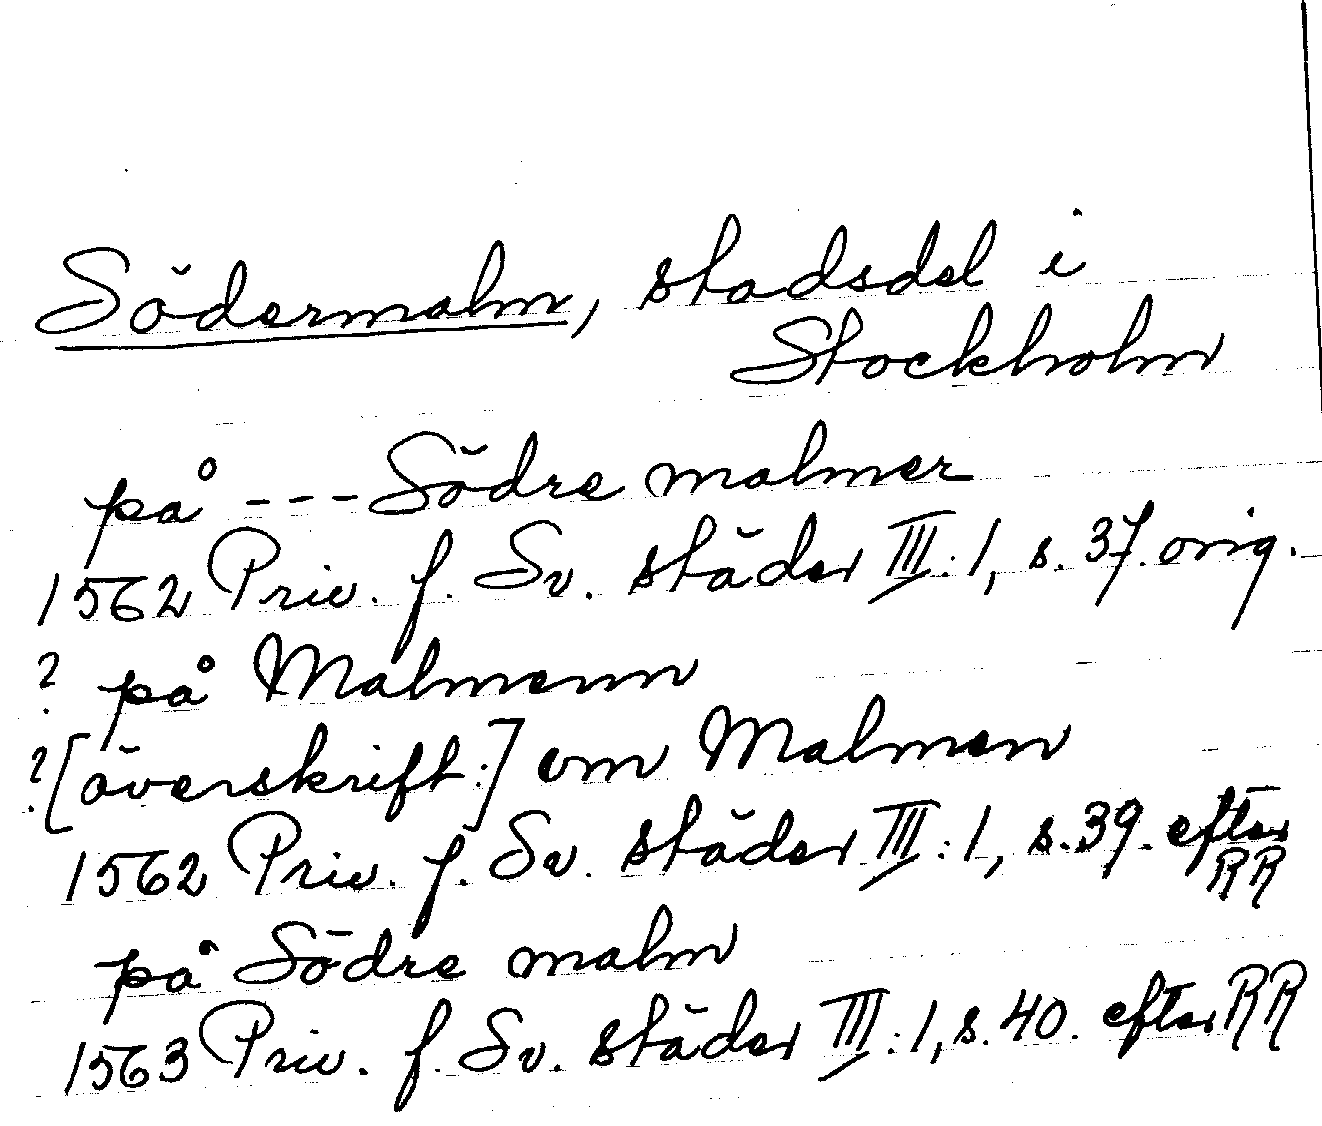 Södermalm, stadsdel i
Stockholm
på --- Södre malmer
1562 Priv. f. Sv. städer III:1, s. 37. orig.
? på Malmenn
?[överskrift:] om Malmen
1562 Priv. f. Sv. städer III:1, s. 39. efter
RR
på Södre malm
1563 Priv. f. Sv. städer III:1, s. 40. efter RR